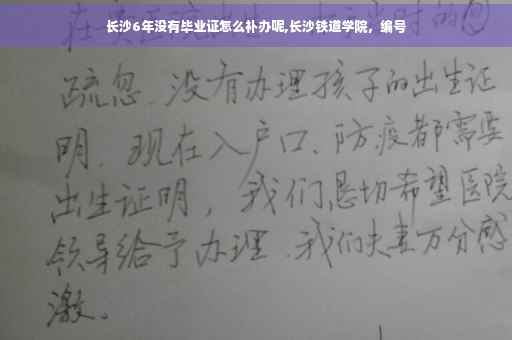 长沙6年没有毕业证怎么补办呢,长沙铁道学院，编号
疏忽、没有办理孩子的出生证
明．现在入户口、防疫都需要
出生证明，我们恳切希望医院
领导给予办理．我们夫妻万分感
激。